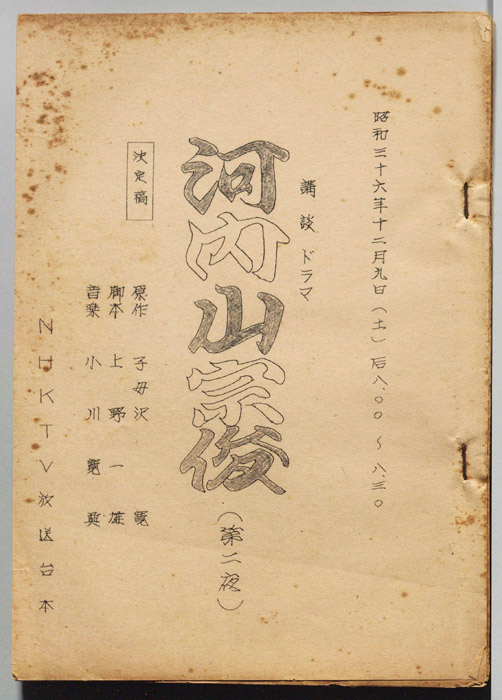 昭和三十六年十二月九日（土）后八.〇〇～八.三〇
講談ドラマ
河内山宗俊（第二夜）
決定稿
原作 子母沢 寛
脚本 上野一雄
音楽 小川寛興
NHKTV放送台本